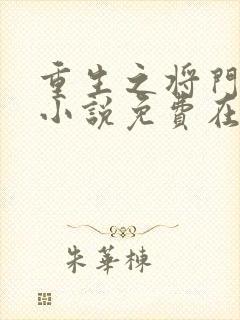 重生之将門
小説免費在
朱華棟